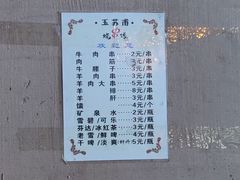 ·玉苏甫·
烧烤
欢迎您
牛肉串——2元/串
肉筋——3元/串
牛腰子——3元/串
羊肉串——3元/串
羊肉大串——5元/串
羊排——8元/串
羊肝——3元/串
馕——4元/个
矿泉水——2元/瓶
雪碧/可乐——3元/瓶
芬达/冰红茶——3元/瓶
老雪/鲜啤——4元/瓶
干啤/淡爽——5元/瓶